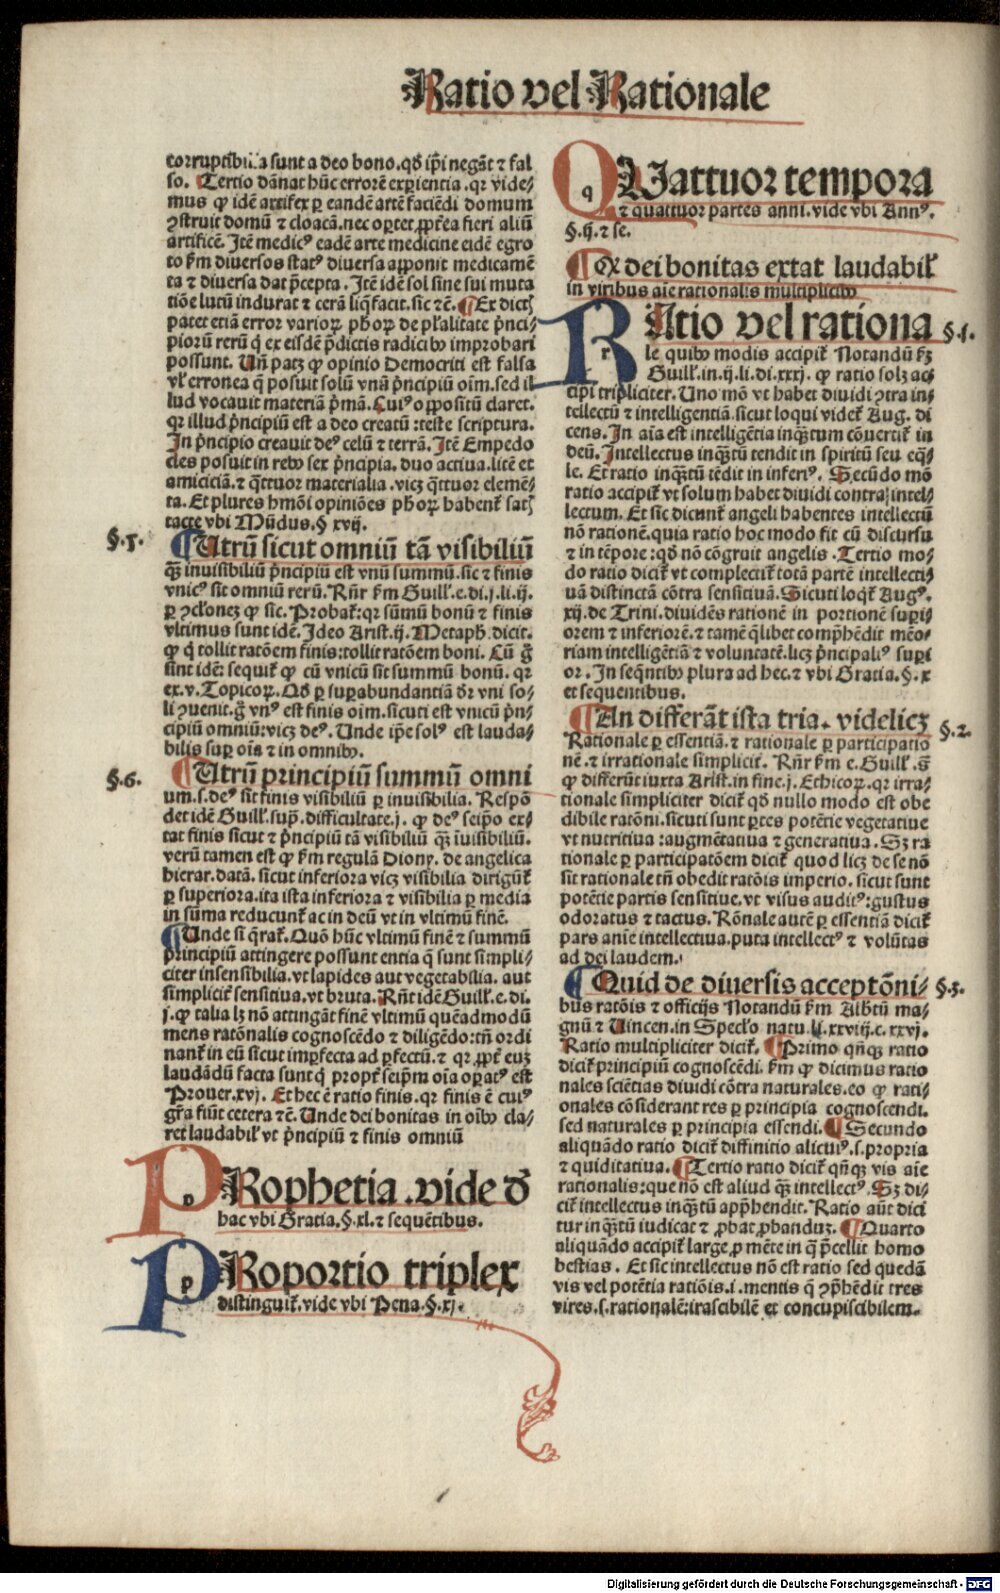 Ratio vel Rationale
corruptibilia sunt a deo bono.qd̄ ip̄i negāt ⁊ fal
so. Tertio dānat hūc errorē exꝑientia.qꝛ vide-
mus ꝙ idē artifex ꝑ eandē artē faciēdi domum
ꝯstruit domū ⁊ cloacā.nec oꝑtet ꝓpt̄ea fieri aliū
artificē. Itē medicꝰ eadē arte medicine eidē egro
to ẜm diuersos statꝰ diuersa apponit medicamē
ta ⁊ diuersa dat p̄cepta. Itē idē sol sine sui muta
tiōe lutū indurat ⁊ cerā liq̄facit.sic ⁊c̄. ¶Ex dict̄
patet etiā error varioꝝ ph̄oꝝ de pl̄alitate p̄nci-
pioꝝ rerū q̄ ex eisdē p̄dictis radicibꝰ improbari
possunt. Uñ patꝫ ꝙ opinio Democriti est falsa
vl̄ erronea q̄ posuit solū vnū p̄ncipiū oīm.sed il
lud vocauit materiā p̄mā. Cuiꝰ oppositū claret.
qꝛ illud p̄ncipiū est a deo creatū :teste scriptura.
In p̄ncipio creauit deꝰ celū ⁊ terrā. Itē Empedo
cles posuit in rebꝰ sex p̄ncipia. duo actiua.litē et
amiciciā.⁊ q̄ttuor materialia .vicꝫ q̄ttuor elemē-
ta. Et plures hmōi opiniōes ph̄oꝝ habent̄ sat̄
tacte vbi Mūdus.§ xvij.
§.5.
¶Utrū sicut omniū tā visibiliū
qꝫ inuisibiliū p̄ncipiū est vnū summū.sic ⁊ finis
vnicꝰ sit omniū rerū. Rn̄r ẜm Guill̄.e.di.j.li.ij.
ꝑ ꝯcloneꝫ ꝙ sic. Probat̄:qꝛ sūmū bonū ⁊ finis
vltimus sunt idē. Ideo Arist.ij. Metaph̄.dicit.
ꝙ q̄ tollit ratōem finis:tollit ratōem boni. Cū g̊
sint idē: sequit̄ ꝙ cū vnicū sit summū bonū. qꝛ
ex.v. Topicoꝝ. Qd̄ ꝑ suꝑabundantiā dr̄ vni so-
li ꝯuenit.g̊ vnꝰ est finis oīm.sicuti est vnicū p̄n-
cipiū omniū:vicꝫ deꝰ. Unde ip̄e solꝰ est lauda-
bilis suꝑ oīs ⁊ in omnibꝰ.
§.6.
¶Utrū principiū summū omni
um.s.deꝰ sit finis visibiliū ꝑ inuisibilia. Respō
det idē Guill̄.sup̄.difficultate.j. ꝙ deꝰ seip̄o ex-
tat finis sicut ⁊ p̄ncipiū tā visibiliū qꝫ īuisibiliū.
verū tamen est ꝙ ẜm regulā Diony. de angelica
hierar.datā. sicut inferiora vicꝫ visibilia dirigūt̄
ꝑ superiora.ita ista inferiora ⁊ visibilia ꝑ media
in sūma reducunt̄ ac in deū vt in vltimū finē.
¶Unde si q̄rat̄. Quō hūc vltimū finē ⁊ summū
principiū attingere possunt entia q̄ sunt simpli-
citer insensibilia.vt lapides aut vegetabilia. aut
simplicit̄ sensitiua.vt bruta. Rn̄t idē Guill̄.e.di.
j.ꝙ talia lꝫ nō attingāt finē vltimū quēadmodū
mens ratōnalis cognoscēdo ⁊ diligēdo:tn̄ ordi
nant̄ in eū sicut imꝑfecta ad ꝑfectū.⁊ qꝛ ꝓpt̄ euꝫ
laudādū facta sunt q̄ propt̄ seip̄m oīa oꝑatꝰ est
Prouer.xvj. Et hec ē ratio finis.qꝛ finis ē cuiꝰ
gr̄a fiūt cetera ⁊c̄. Unde dei bonitas in oībꝰ cla-
ret laudabil̄ vt p̄ncipiū ⁊ finis omniū
PRophetia .vide ð
hac vbi Gratia.§.xl.⁊ sequētibus.
PRoportio triplex
distinguit̄.vide vbi Pena.§.xj.
QUattuor tempora
⁊ quattuor partes anni.vide vbi Annꝰ.
§.ij.⁊ se.
¶Ex dei bonitas extat laudabil̄
in viribus aīe rationalis multiplicibꝰ
§.1.
RAtio vel rationa
le quibꝰ modis accipit̄ Notandū ẜꝫ
Guill̄.in.ij.li.di.xxxj. ꝙ ratio solꝫ ac-
cipi tripliciter. Uno mō vt habet diuidi ꝯtra in-
tellectū ⁊ intelligentiā.sicut loqui videt̄ Aug. di
cens. In aīa est intelligētia inqꝫtum cōuertit̄ in
deū. Intellectus inqꝫtū tendit in spiritū seu eq̄-
le. Et ratio inqꝫtū tēdit in inferiꝰ. Secūdo mō
ratio accipit̄ vt solum habet diuidi contra intel-
lectum. Et sic dicunt̄ angeli habentes intellectū
nō rationē.quia ratio hoc modo fit cū discursu
⁊ in tēpore :qd̄ nō cōgruit angelis . Tertio mo-
do ratio dicit̄ vt complectit̄ totā partē intellecti-
uā distinctā contra sensitiuā. Sicuti loqt̄ Augꝰ.
xij.de Trini.diuidēs rationē in portionē suꝑi-
orem ⁊ inferiorē.⁊ tamē q̄libet comp̄hēdit mēo-
riam intelligētiā ⁊ voluntatē.licꝫ p̄ncipaliꝰ suꝑi
or . In seq̄ntibꝰ plura ad hec.⁊ vbi Gratia.§.x
et sequentibus.
§.2.
¶An differāt ista tria. videlicꝫ
Rationale ꝑ essentiā.⁊ rationale ꝑ participatio
nē.⁊ irrationale simplicit̄. Rn̄r ẜm e.Guill̄.g̊
ꝙ differūt iuxta Arist.in fine.j. Ethicoꝝ.qꝛ irra-
tionale simpliciter dicit̄ qd̄ nullo modo est obe
dibile ratōni.sicuti sunt ꝑtes potētie vegetatiue
vt nutritiua :augmētatiua ⁊ generatiua. Sꝫ ra
tionale ꝑ participatōem dicit̄ quod licꝫ de se nō
sit rationale tn̄ obedit ratōis imperio. sicut sunt
potētie partis sensitiue.vt visus auditꝰ:gustus
odoratus ⁊ tactus. Rōnale autē ꝑ essentiā dicit̄
pars anīe intellectiua.puta intellectꝰ ⁊ volūtas
ad dei laudem.
§.3.
¶Quid de diuersis acceptōni-
bus ratōis ⁊ officijs Notandū ẜm Albtū ma-
gnū ⁊ Uincen.in Spec̄lo natu.li.xxviij.c.xxvj.
Ratio multipliciter dicit̄. ¶Primo qn̄qꝫ ratio
dicit̄ principiū cognoscēdi. ẜm ꝙ dicimus ratio
nales sciētias diuidi cōtra naturales.eo ꝙ rati-
onales cōsiderant res ꝑ principia cognoscendi.
sed naturales ꝑ principia essendi. ¶Secundo
aliquādo ratio dicit̄ diffinitio alicuiꝰ.s.propria
⁊ quiditatiua. ¶Tertio ratio dicit̄ qn̄qꝫ vis aīe
rationalis:que nō est aliud qꝫ intellectꝰ. Sꝫ di-
cit̄ intellectus inqꝫtū app̄hendit. Ratio aūt dici
tur inqꝫtū iudicat ⁊ ꝓbat ꝓbanduꝫ. ¶Quarto
aliquādo accipit̄ large ꝓ mēte in q̄ p̄cellit homo
bestias . Et sic intellectus nō est ratio sed quedā
vis vel potētia ratiōis.i.mentis q̄ ꝯp̄hēdit tres
vires.s.rationalē:irascibilē et concupiscibilem.
Digitalisierung gefördert durch die Deutsche Forschungsgemeinschaft - DFG